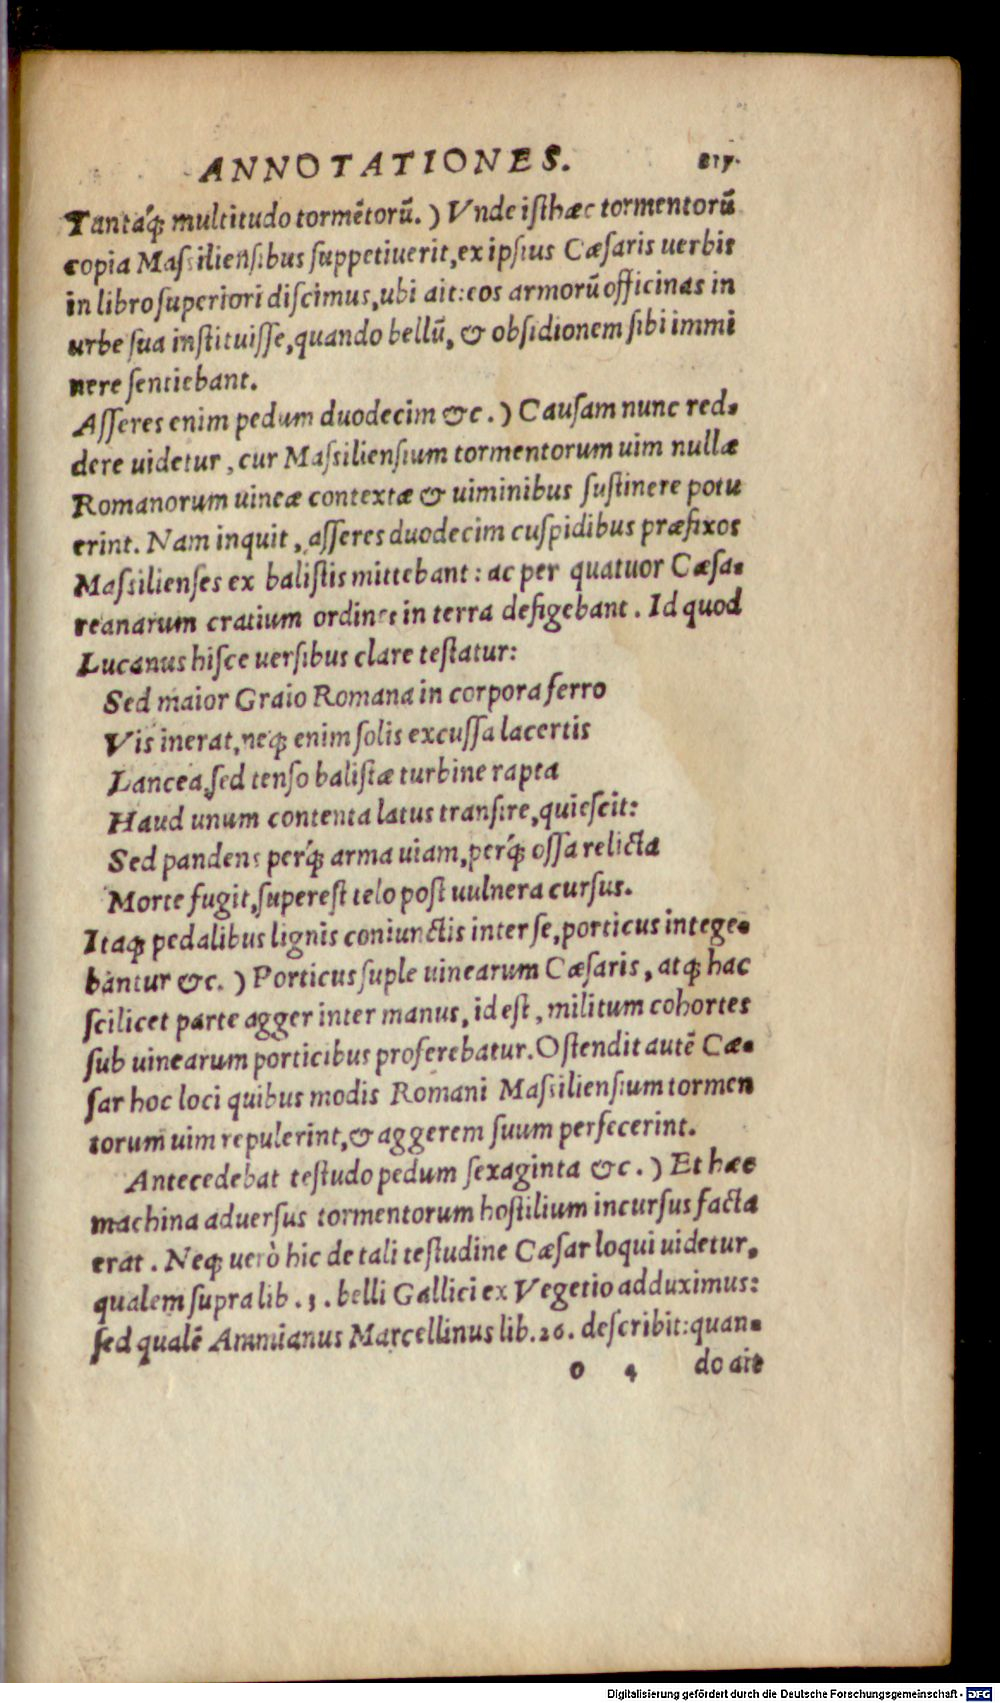 ANNOTATIONES. 215.
Tantáq; multitudo tormētorū.) Vnde isthæc tormentorū
copia Massiliensibus suppetiuerit, ex ipsius Cæsaris uerbis
in libro superiori discimus, ubi ait: eos armorū officinas in
urbe sua instituisse, quando bellū, & obsidionem sibi immi
nere sentiebant.
Asseres enim pedum duodecim &c.) Causam nunc red-
dere uidetur, cur Massiliensium tormentorum uim nullæ
Romanorum uineæ contextæ & uiminibus sustinere potu
erint. Nam inquit, asseres duodecim cuspidibus præfixos
Massilienses ex balistis mittebant: ac per quatuor Cæsa-
reanarum cratium ordines in terra defigebant. Id quod
Lucanus hisce uersibus clare testatur:
Sed maior Graio Romana in corpora ferro
Vis inerat, neq; enim solis excussa lacertis
Lancea, sed tenso balistæ turbine rapta
Haud unum contenta latus transire, quiescit:
Sed pandens perq́; arma uiam, perq́; ossa relicta
Morte fugit, superest telo post uulnera cursus.
Itaq; pedalibus lignis coniunctis inter se, porticus intege-
bantur &c.) Porticus suple uinearum Cæsaris, atq; hac
scilicet parte agger inter manus, id est, militum cohortes
sub uinearum porticibus proferebatur. Ostendit autē Cæ-
sar hoc loci quibus modis Romani Massiliensium tormen
torum uim repulerint, & aggerem suum perfecerint.
Antecedebat testudo pedum sexaginta &c.) Et hæc
machina aduersus tormentorum hostilium incursus facta
erat. Neq; uerò hic de tali testudine Cæsar loqui uidetur,
qualem supra lib. 3. belli Gallici ex Vegetio adduximus:
sed qualē Ammianus Marcellinus lib. 26. describit: quan-
o 4 do ait
Digitalisierung gefördert durch die Deutsche Forschungsgemeinschaft - DFG